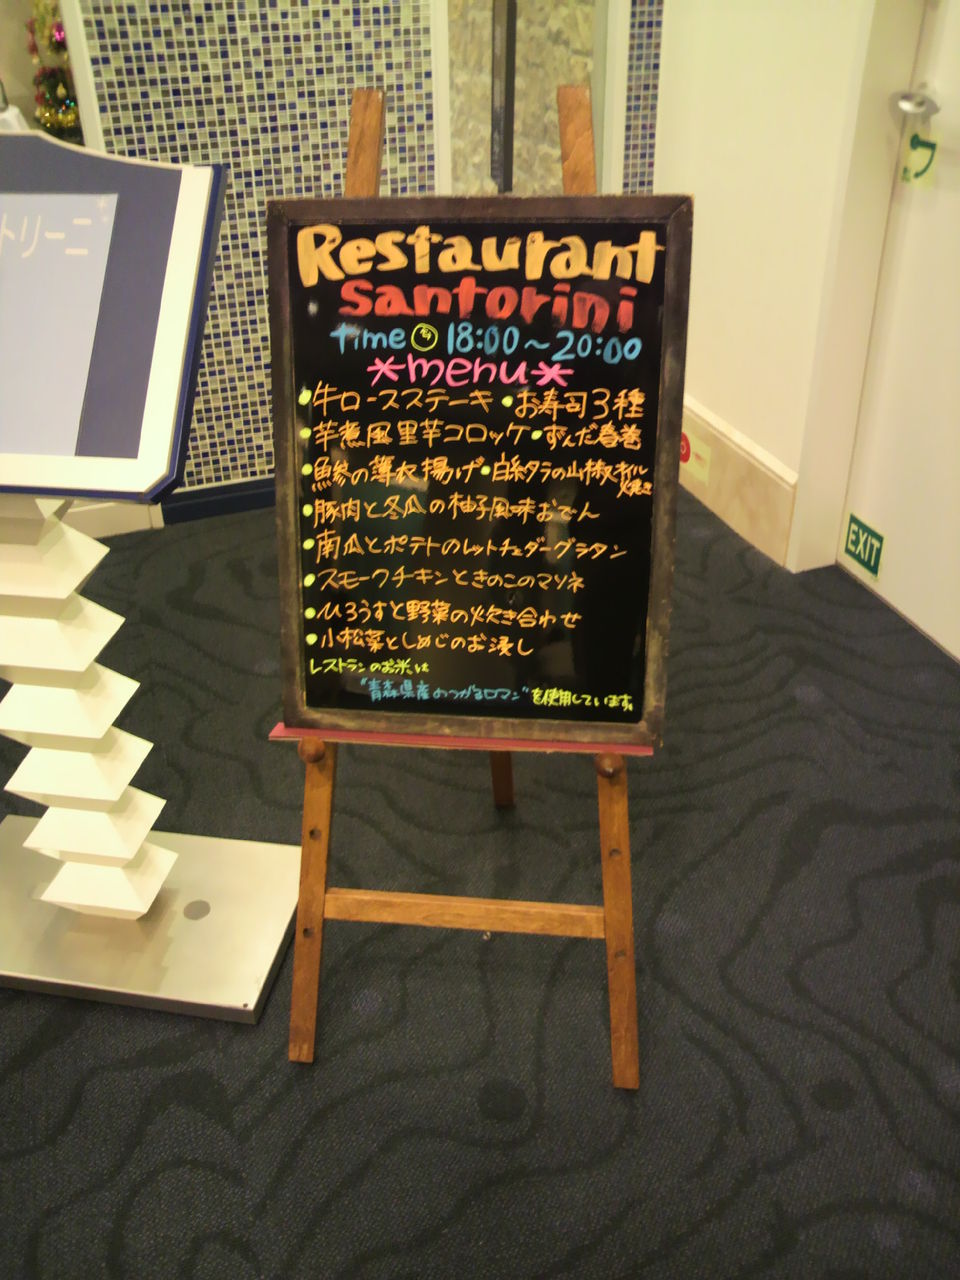 トリーニ
Restaurant
Santorini
time 18:00～20:00
*menu*
・牛ロースステーキ ・お寿司3種
・芋煮風里芋コロッケ ・ずんだ春巻
・鰺の薄衣揚げ ・白糸タラの山椒オイル焼き
・豚肉と冬瓜の柚子風味おでん
・南瓜とポテトのレッドチェダーグラタン
・スモークチキンときのこのマリネ
・ひろうすと野菜の炊き合わせ
・小松菜としめじのお浸し
レストランのお米は
"青森県産のつがるロマン"を使用しています。
EXIT